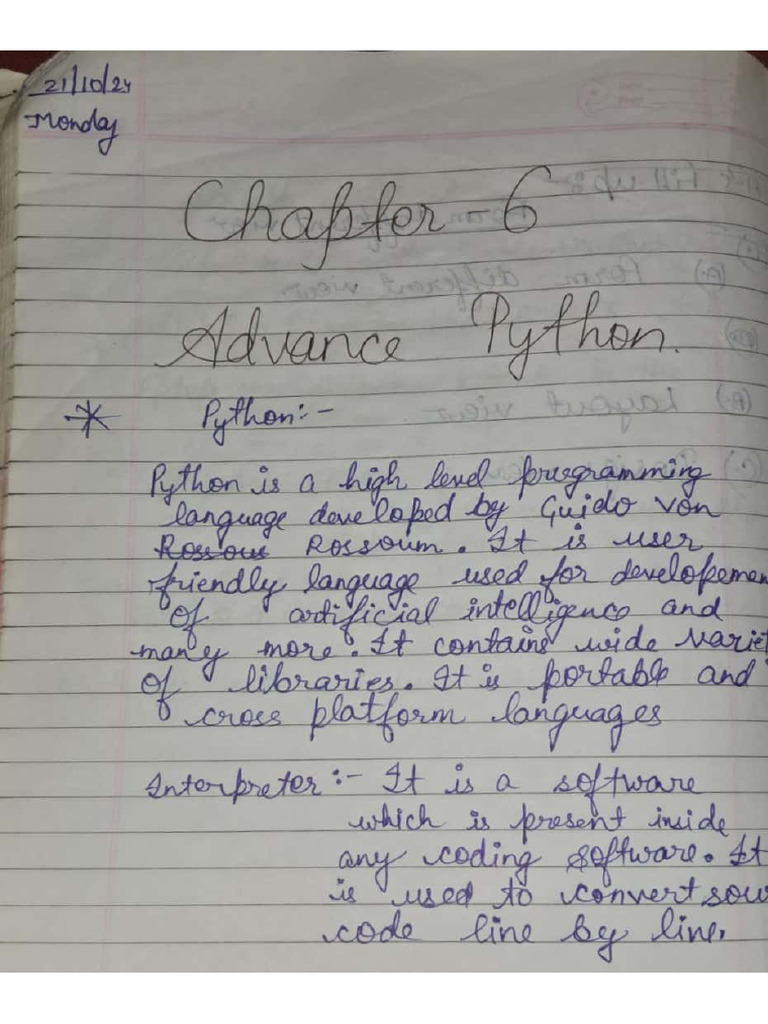 21/10/24
Monday
Chapter - 6
Advance Python.
* Python:-
Python is a high level programming
language developed by Guido Von
Rossoum. It is user
friendly language used for developemen
of artificial intelligence and
many more. It contains wide variet
of libraries. It is portable and
cross platform languages
Interpreter:- It is a software
which is present inside
any coding software. It
is used to convert sou
code line by line,